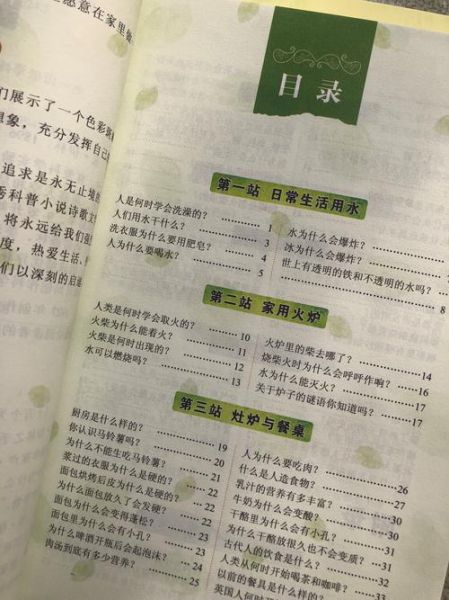 愿意在家里
们展示了一个色彩
想象，充分发挥自己
追求是永无止境的
秀科普小说诗歌
将永远给我们
度，热爱生活，
们以深刻的启迪
目录
第一站 日常生活用水
人是何时学会洗澡的？ ………… 1
人们用水干什么？ ………… 3
洗衣服为什么要用肥皂？ ………… 4
人为什么要喝水？ ………… 5
水为什么会爆炸？ …………
冰为什么会爆炸？ …………
世上有透明的铁和不透明的水吗？
………… 8
第二站 家用火炉
人类是何时学会取火的？ ………… 10
火柴为什么能着火？ ………… 11
火柴是何时出现的？ ………… 12
水可以燃烧吗？ ………… 13
火炉里的柴去哪了？ ………… 14
烧柴火时为什么会呼呼作响？ …… 16
水为什么能灭火？ ………… 17
关于炉子的谜语你知道吗？ …… 17
第三站 灶炉与餐桌
厨房是什么样的？ ………… 19
你认识马铃薯吗？ ………… 20
为什么不能生吃马铃薯？ ………… 20
浆过的衣服为什么是硬的？ ……… 21
面包烘烤后皮为什么是硬的？ …… 22
为什么面包放久了会发硬？ ……… 22
面包为什么会变得蓬松？ ………… 22
面包里为什么会有小孔？ ………… 23
为什么啤酒开瓶后会起泡沫？ …… 24
肉汤到底有多少营养？ ………… 25
人为什么要吃肉？ ………… 26
什么是人造食物？ ………… 27
乳汁的营养有多丰富？ ………… 30
牛奶为什么会变酸？ ………… 30
干酪里为什么会有小孔？ ………… 31
为什么干酪放很久也不会变质？ … 31
古代人的饮食是什么？ ………… 32
人类从何时开始喝茶和咖啡？ …… 33
以前的餐具是什么样的？ …………
英国人何时